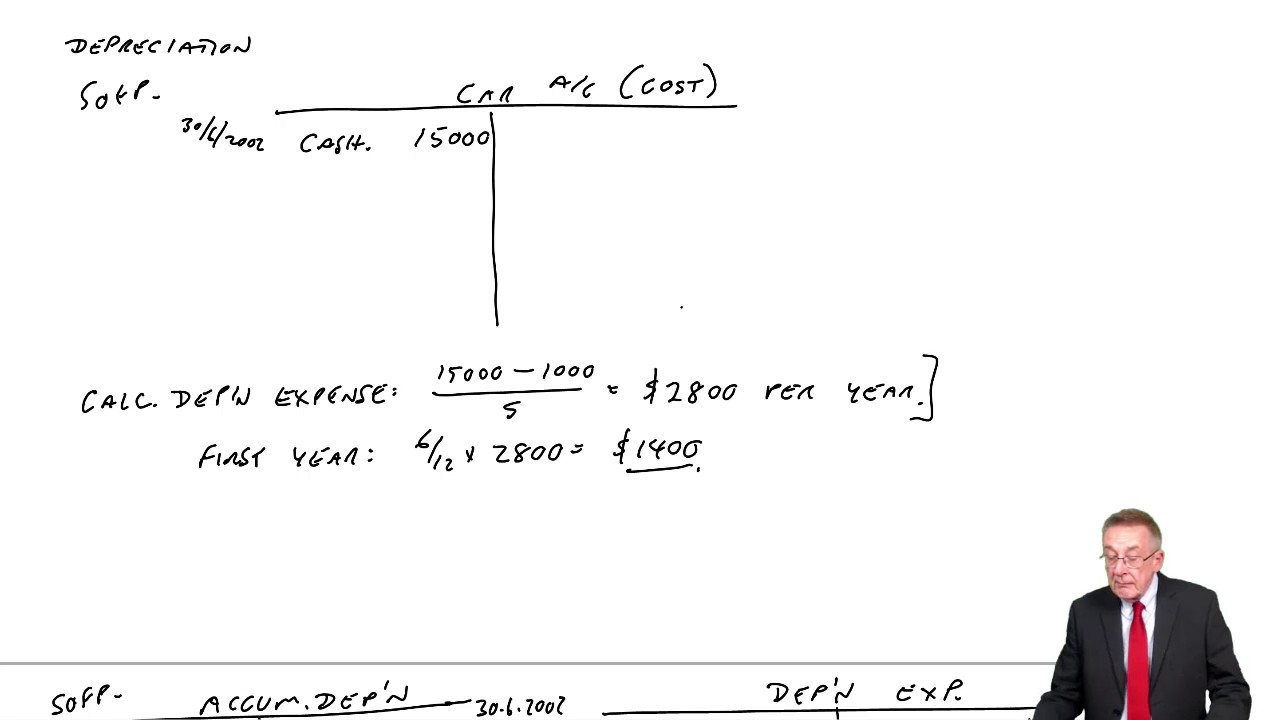 DEPRECIATION
SOFP- CAR A/C (COST)
30/6/2002 CASH. 15000
CALC. DEP'N EXPENSE: 15000 - 1000 / 5 = $2800 PER YEAR.]
FIRST YEAR: 6/12 x 2800 = $1400.
SOFP- ACCUM. DEP'N 30.6.2002 DEP'N EXP.